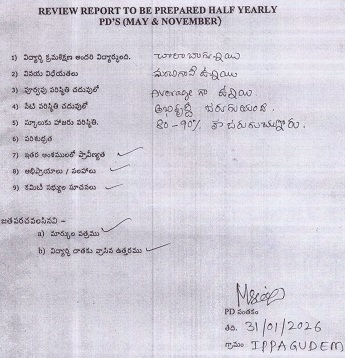 REVIEW REPORT TO BE PREPARED HALF YEARLY
PD'S (MAY & NOVEMBER)
1) విద్యార్థి క్రమశిక్షణ అందరి విద్యార్థులది. చాలా బాగున్నాయి
2) వినయ విధేయతలు మంచిగానే ఉన్నాయి
3) పూర్వపు పరిస్థితి చదువులో Average గా ఉన్నాయి
4) నేటి పరిస్థితి చదువులో అభివృద్ధి జరుగుతుంది
5) స్కూలుకు హాజరు పరిస్థితి. 80-90%
6) పరిశుభ్రత
7) ఇతర అంశములలో ప్రావీణ్యత
8) అభిప్రాయాలు / సలహాలు
9) కమిటీ సభ్యుల సూచనలు
జతపరచవలసినవి –
a) మార్కుల పత్రము
b) విద్యార్థి దాతకు వ్రాసిన ఉత్తరము
PD సంతకం
తేది. 31/01/2026
గ్రామం IPPAGUDEM